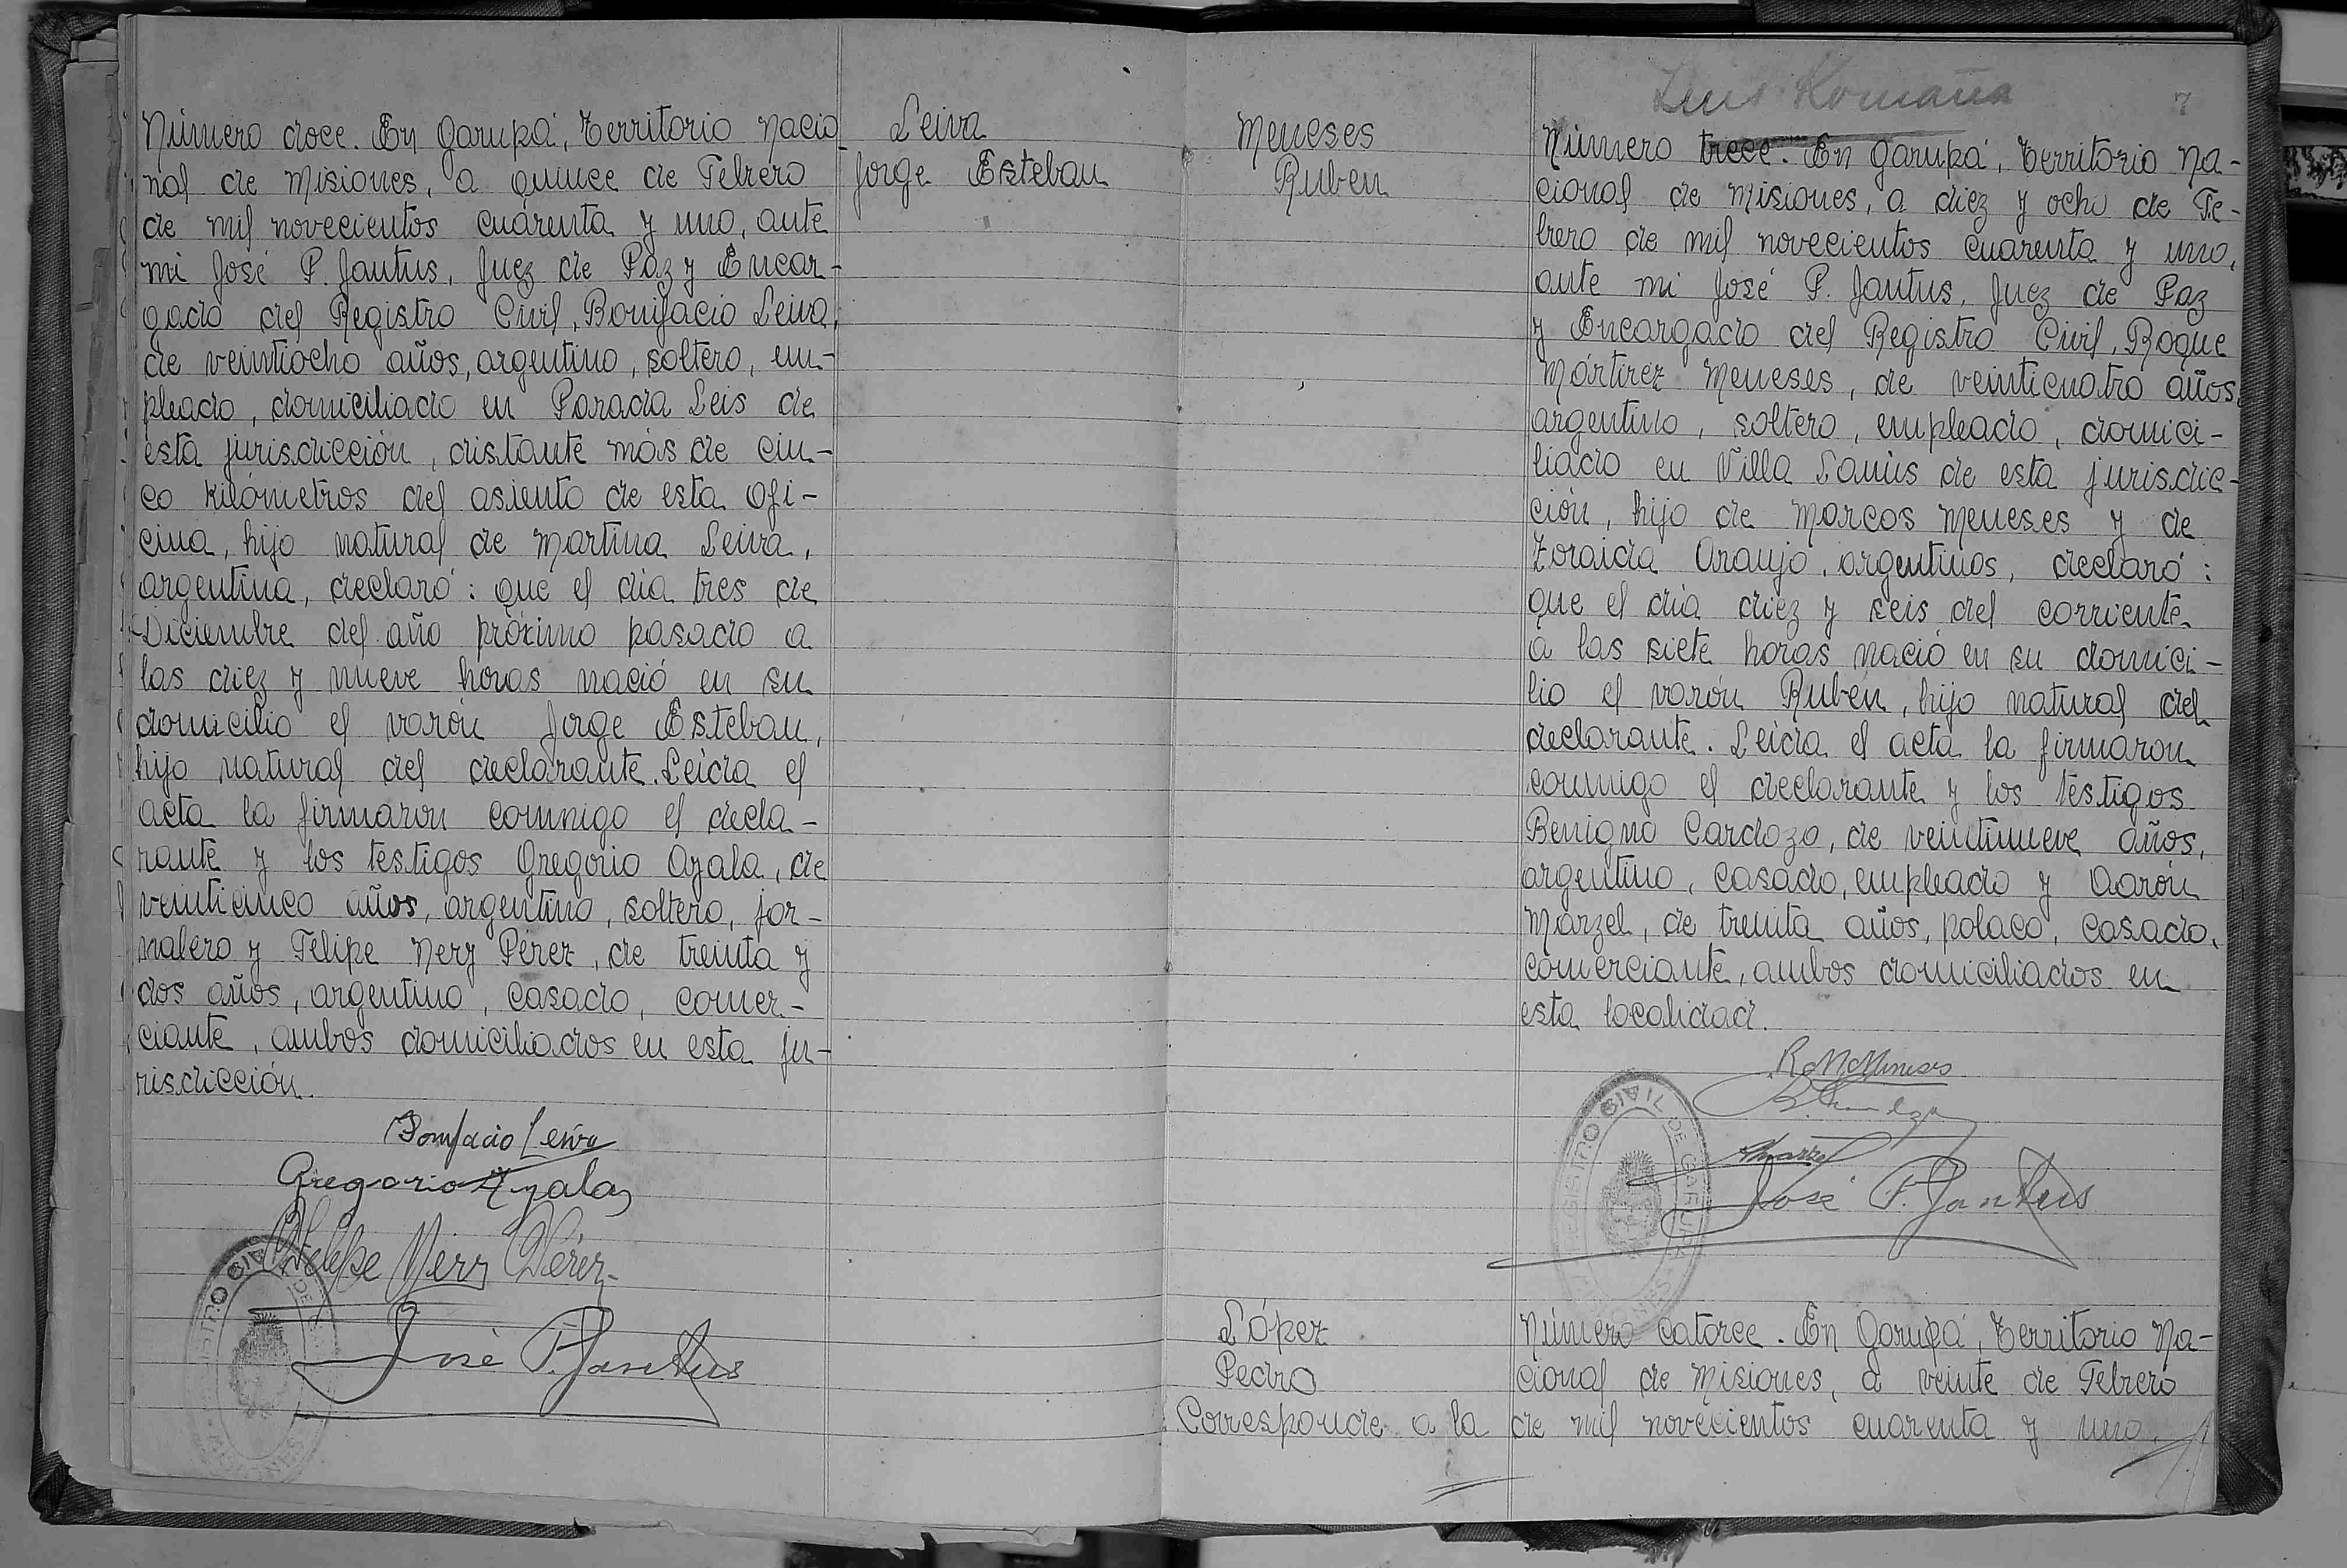 Número doce. En Garupá, Territorio Nacio
nal de Misiones, a quince de Febrero
de mil novecientos cuarenta y uno, ante
mi José P. Jantus, Juez de Paz y Encar-
gado del Registro Civil, Bonifacio Leiva,
de veintiocho años, argentino, soltero, em-
pleado, domiciliado en Parada Leis de
esta jurisdicción, distante más de cin-
co kilómetros del asiento de esta Ofi-
cina, hijo natural de Martina Leiva,
argentina, declaró: que el día tres de
Diciembre del año próximo pasado a
las diez y nueve horas nació en su
domicilio el varón Jorge Esteban,
hijo natural del declarante. Leída el
acta la firmaron conmigo el decla-
rante y los testigos Gregorio Ayala, de
veinticinco años, argentino, soltero, jor-
nalero y Felipe Nery Pérez, de treinta y
dos años, argentino, casado, comer-
ciante, ambos domiciliados en esta ju-
risdicción.
Bonifacio Leiva
Gregorio Ayala
Felipe Nery Pérez
José P. Jantus
Leiva
Jorge Esteban
Meneses
Ruben
Luis Romaña
7
Número trece. En Garupá, Territorio Na-
cional de Misiones, a diez y ocho de Fe-
brero de mil novecientos cuarenta y uno,
ante mi José P. Jantus, Juez de Paz
y Encargado del Registro Civil, Roque
Mártirez Meneses, de veinticuatro años,
argentino, soltero, empleado, domici-
liado en Villa Lanús de esta jurisdic-
ción, hijo de Marcos Meneses y de
Zoraida Araujo, argentinos, declaró:
que el día diez y seis del corriente
a las siete horas nació en su domici-
lio el varón Rubén, hijo natural del
declarante. Leída el acta la firmaron
conmigo el declarante y los testigos
Benigno Cardozo, de veintinueve años,
argentino, casado, empleado y Aarón
Marzel, de treinta años, polaco, casado,
comerciante, ambos domiciliados en
esta localidad.
R M Meneses
AMarzel
José P. Jantus
REGISTRO CIVIL DE GARUPA
MISIONES
López
Pedro
Corresponde a la
Número catorce. En Garupá, Territorio Na-
cional de Misiones, a veinte de Febrero
de mil novecientos cuarenta y uno,